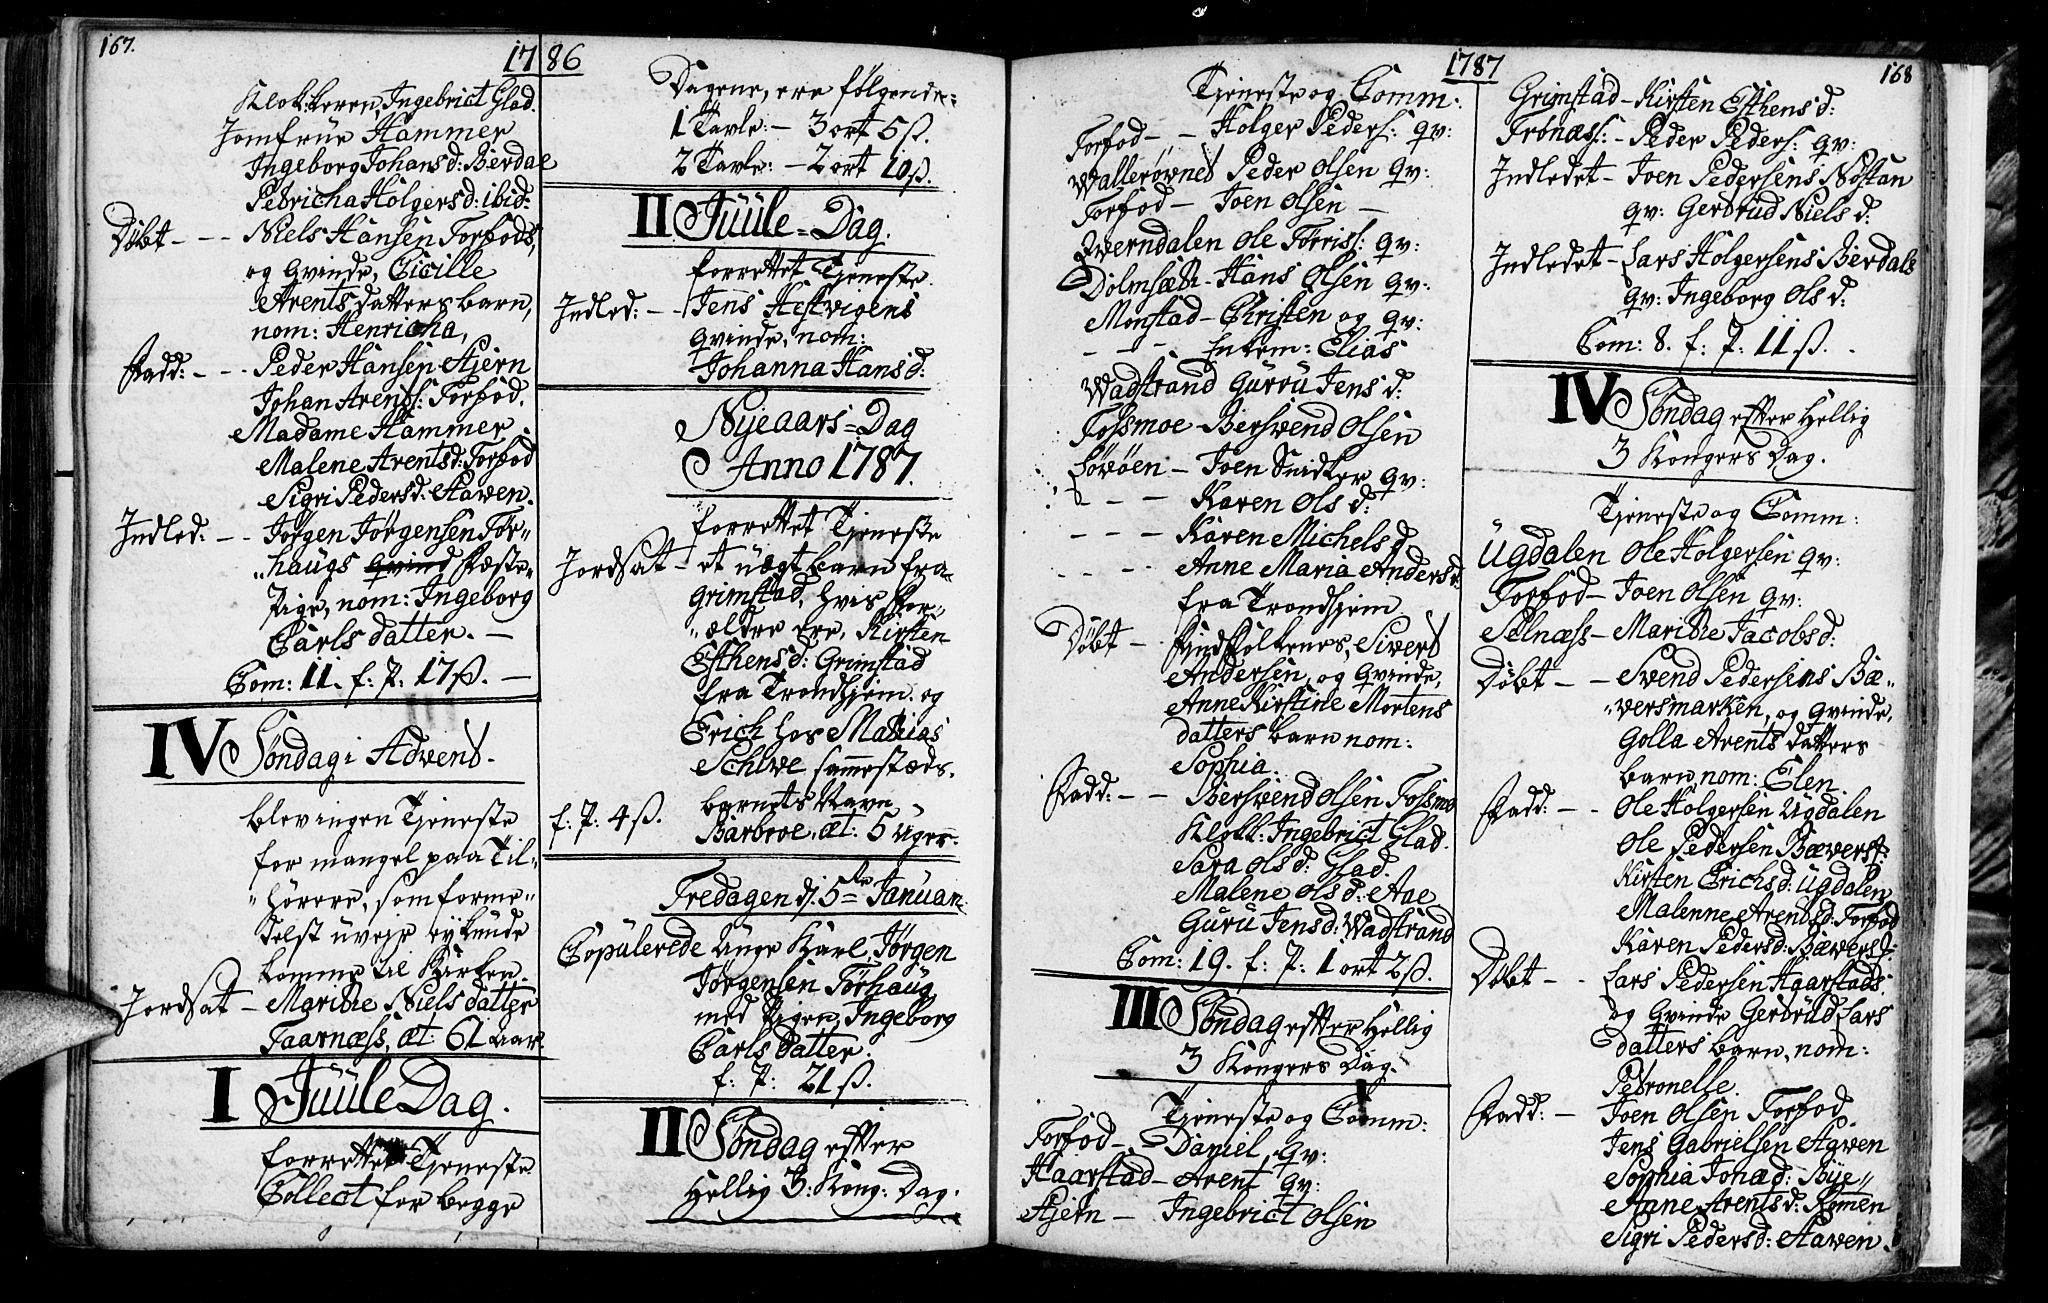 167.
1786
Klokkeren, Ingebrict Glad.
Jomfrue Hammer
Ingeborg Johansd: Berdal
Petricha Holgersd: ibid:
Døbt - - - Niels Hansen Torfods,
og Qvinde, Cicille
Arents datters barn,
nom: Henricha,
Fadd: - - - Peder Hansen Stjern
Johan Arents: Torfod.
Madame Hammer
Malene Arentsd: Torfod
Sigri Pedersd: Staven.
Indled: - - Jørgen Jørgensen Tør-
„haugs Qvind Fæste-
Pige, nom: Ingeborg
Carls datter. -
Com: 11. f: P: 17 ß. -
IV Søndag i Advent.
blev ingen Tjeneste
for mangel paa Til-
„hørere, som forme-
delst uvejr ey kunde
komme til Kirken.
Jordsat - Marithe Niels datter
Taarnæss, æt: 61 aar.
I Juule Dag.
forrettet Tjeneste
Collect for begge
Dagene, ere følgende:
1 Tavle: - 3 ort 5 ß.
2 Tavle: - 2 ort 10 ß.
II Juule=Dag.
forrettet Tjeneste.
Indled: - - Jens Hestvigens
Qvinde, nom:
Johanna Hansd:
Nyeaars=Dag
Anno 1787.
forrettet Tjeneste
Jordsat - et uægt barn fra
Grimstad, hvis For-
„ældre ere, Kirsten
Esthensd: Grimstad
fra Trondhjem og
Erich hos Mathias
Schive sammestæds.
barnets Navn,
f: P: 4 ß. Barbroe, æt: 5 Uger.
Fredagen d. 5te Januar:
Copulerede unge Karl, Jørgen
Jørgensen Tørhaug
med Pigen, Ingeborg
Carls datter.
f: P: 21 ß.
II Søndag efter
Hellig 3: Kong: Dag.
1787
168
Tjeneste og Comm:
Torfod - - Holger Peders: qv:
Wallerøvnet Peder Olsen qv:
Torfod - Joen Olsen -
Qverndalen Ole Tørriss: qv:
Dolmsætr - Hans Olsen qv:
Monstad - Christen og qv:
- - - Enkem: Elias
Wadstrand Gurru Jens d:
Fossmoe - Bersvend Olsen
Søvøen - Joen Snidker qv:
- - - Karen Ols d:
- - - Karen Michelsd
- - - Anne Maria Andersd:
fra Trondhjem
Døbt - Sivert
Andersen, og Qvinde,
Anne Kirstine Mortens
datters barn nom:
Sophia.
Fadd: - - Bersvend Olsen Fossmo
Klokk: Ingebrict Glad.
Sara Olsd: Glad.
Malene Olsd: Aae
Guru Jensd: Wadstrand
Com: 19. f: P: 1 ort 2 ß.
III Søndag efter Hellig
3 Kongers Dag.
Tjeneste og Comm:
Torfod - Daniel, qv:
Haarstad - Arent qv:
Stjern - Ingebrict Olsen
Grimstad - Kirsten Esthensd:
Trønæss: - Peder Peders: qv:
Indledet - Joen Pedersens Nøstan
qv: Gertrud Nielsd:
Indledet - Lars Holgersens Berdals
qv: Ingeborg Olsd:
Com: 8. f: P: 11 ß.
IV Søndag efter Hellig
3 Kongers Dag.
Tjeneste og Comm:
Ugdalen Ole Holgersen qv:
Torfod - Joen Olsen qv:
Selnæss - Marithe Jacobsd:
Døbt - - Svend Pedersens Bæ-
„versmarken, og Qvinde,
Golla Arents datters
barn, nom: Elen.
Fadd: - - Ole Holgersen Ugdalen
Ole Pedersen Bæversf:
Kirsten Erichsd: Ugdalen
Malenne Arentsd: Torfod
Karen Pedersd: Bæversf:
Døbt - - Lars Pedersen Haarstads
og Qvinde Gertrud Lars
datters barn, nom:
Petronelle.
Fadd: - Joen Olsen Torfod
Jens Gabrielsen Aaven
Sophia Johad: Bye„
Anne Arentsd: Rømen
Sigri Pedersd: Staven.